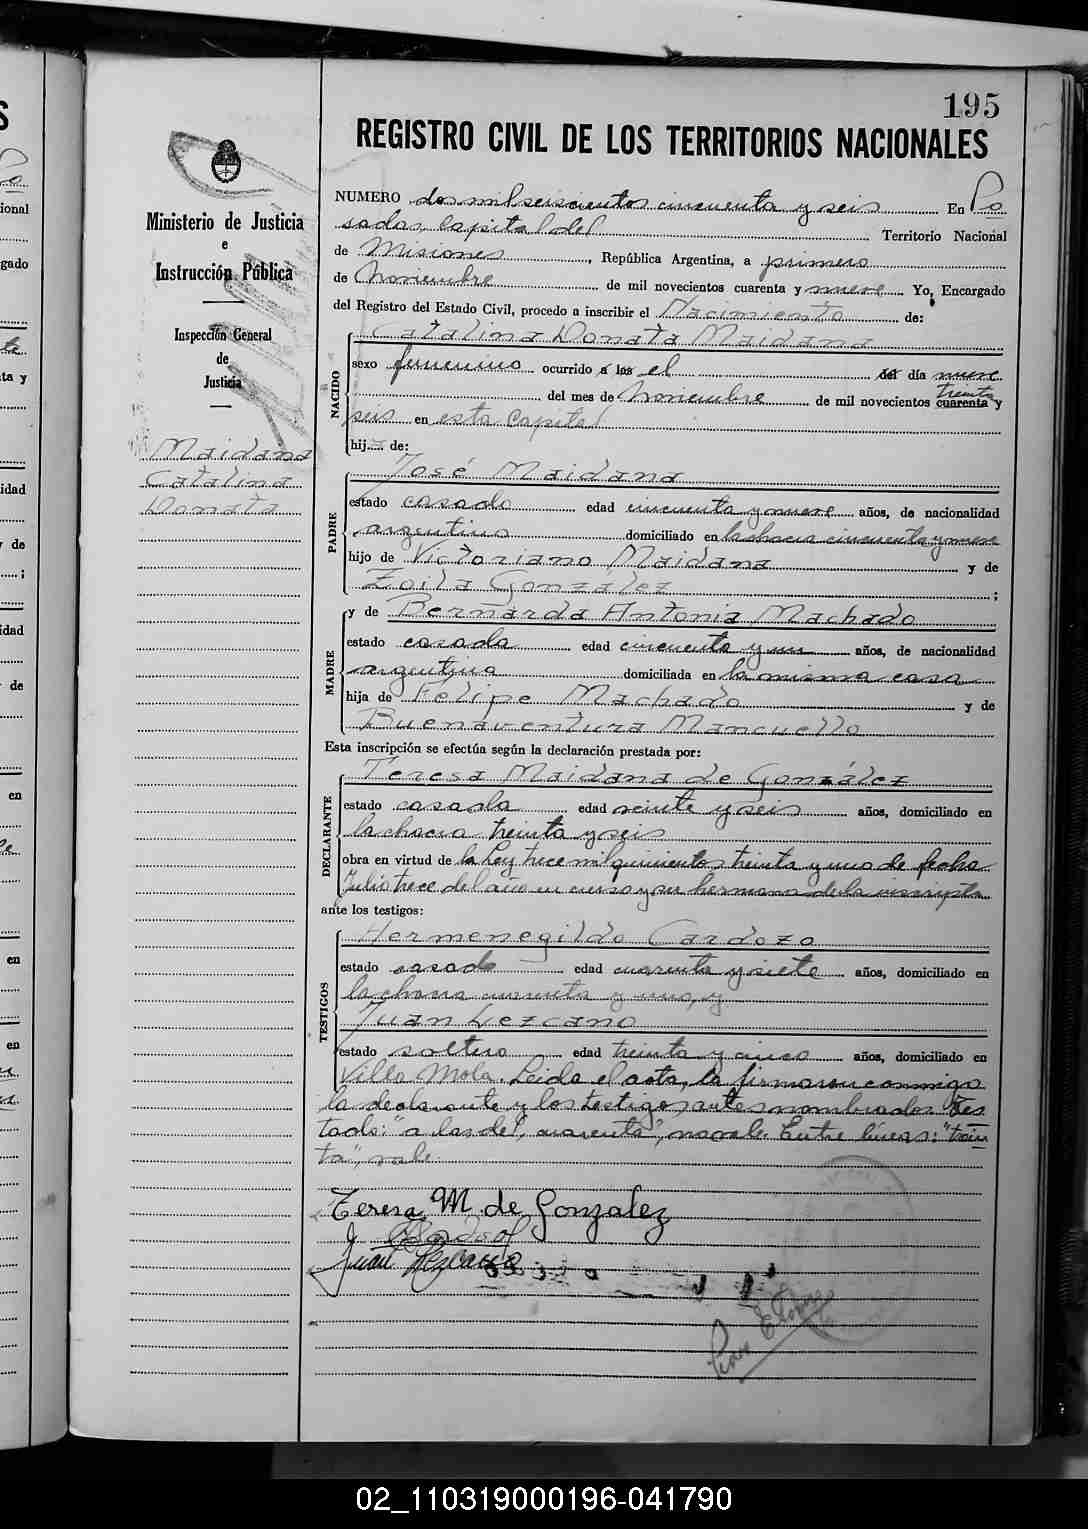 195
REGISTRO CIVIL DE LOS TERRITORIOS NACIONALES
Ministerio de Justicia
e
Instrucción Pública
Inspección General
de
Justicia
Maidana
Catalina
Donata
NUMERO dos mil seiscientos cincuenta y seis En Po
sadas, capital del Territorio Nacional
de Misiones, República Argentina, a primero
de Noviembre de mil novecientos cuarenta y nueve. Yo, Encargado
del Registro del Estado Civil, procedo a inscribir el Nacimiento de:
Catalina Donata Maidana
NACIDO
sexo femenino ocurrido a las el del día nueve
treinta
del mes de Noviembre de mil novecientos cuarenta y
seis en esta Capital
hij de:
José Maidana
PADRE
estado casado edad cincuenta y nueve años, de nacionalidad
argentino domiciliado en la chacra cincuenta y nueve
hijo de Victoriano Maidana y de
Zoila González ;
MADRE
y de Bernarda Antonia Machado
estado casada edad cincuenta y un años, de nacionalidad
argentina domiciliada en la misma casa
hija de Felipe Machado y de
Buenaventura Mancuello
Esta inscripción se efectúa según la declaración prestada por:
Teresa Maidana de González
DECLARANTE
estado casada edad veinte y seis años, domiciliado en
la chacra treinta y seis
obra en virtud de la Ley trece mil quinientos treinta y uno de fecha
Julio trece del año en curso y ser hermana de la inscripta
ante los testigos:
Hermenegildo Cardozo
TESTIGOS
estado casado edad cuarenta y siete años, domiciliado en
la chacra cuarenta y uno, y
Juan Lezcano
estado soltero edad treinta y cinco años, domiciliado en
Villa Mola. Leida el acta, la firmaron conmigo
la declarante y los testigos antes nombrados. Tes
tado: "a las del, cuarenta", no vale. Entre líneas: "trein
ta", vale.
Teresa M. de Gonzalez
Juan Lezcano
02_110319000196-041790